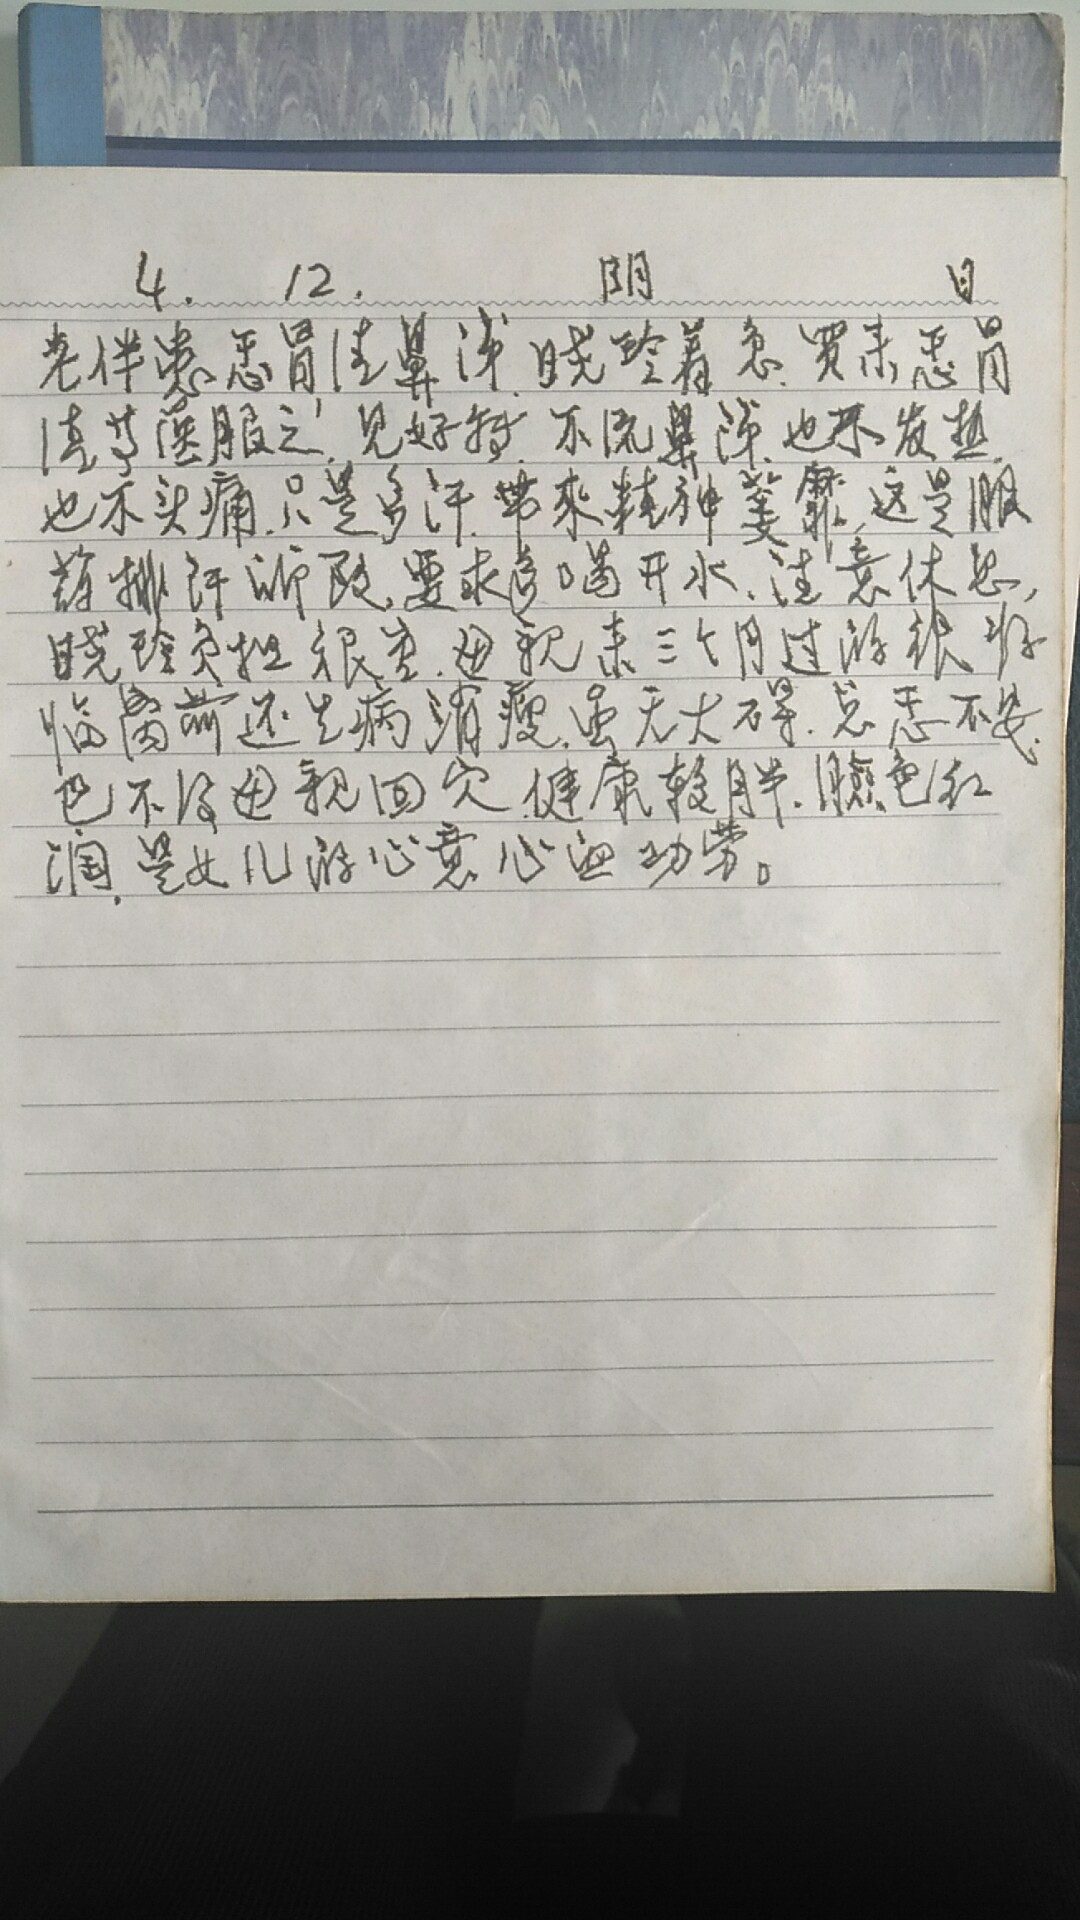 4. 12. 阴 日
老伴患感冒清鼻涕.晓玲着急.买来感冒
清等医服之,见好转.不流鼻涕.也不发热.
也不头痛.只是多汗.带来精神萎靡,这是服
药排汗所致.要求多喝开水.注意休息,
晓玲负担很重.母亲来三个月过的很好
临离前还生病消瘦.虽无大碍.总感不安.
巴不得母亲回穴.健康较胖.臉色红
润.是女儿的心意心血功劳。